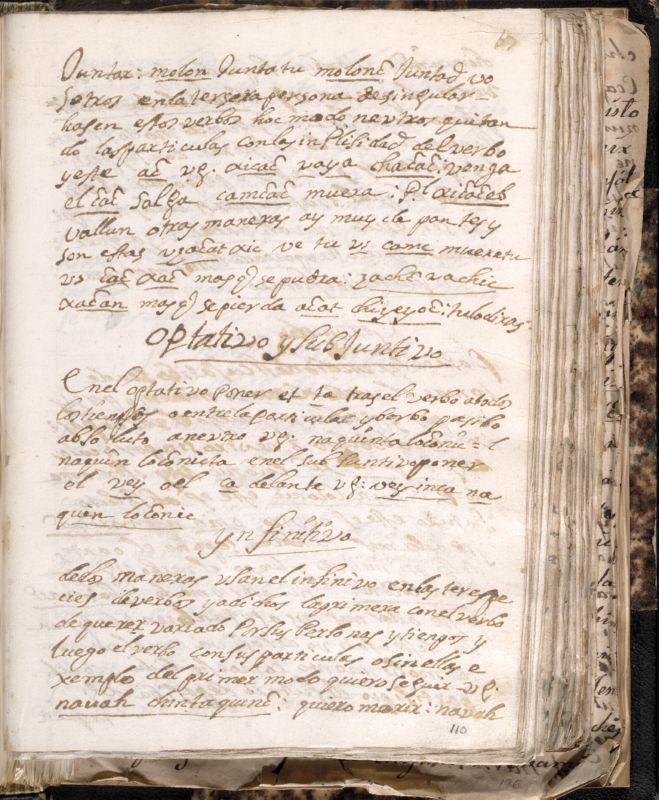 Juntar: molon Junta tu molonc̄ Juntad vo
sotros en la tersera persona de singular
hasen estos verbos hoc modo neutros quitan
do las particulas con las infilisidad del verbo
y este ac̄ vg. aicac̄ vaya chacac̄: venga
el cac̄ salga camcac̄ muera: Pl aicaceb
vallun otras maneras ay muy de pontes y
son estas ve tu vs camc muere tu
vs masq̄ se pudra:
masq̄ se pierda tu lo dixas
optativo y subJuntivo
En el optativo poner et ta tras el verbo a todos
los tiempos o entre la particula y berbo pasibo
absoluto a neutro vg: naquinta loconic = l
naquin loconicta en el subJuntivo poner
el vey o el ca delante vg: vey inca na
quin loconic
ynfinitivo
de dos maneras vsan el infinitivo en las tres espe
cies de verbos ya dichos la primera con el verbo
de querer variado Por sus Personas y tiempos y
luego el verbo con sus particulas o sin ellas e
xemplo del primer modo quiero seguir vg.
navah chintaquinc̄: quiero morir: navah
110